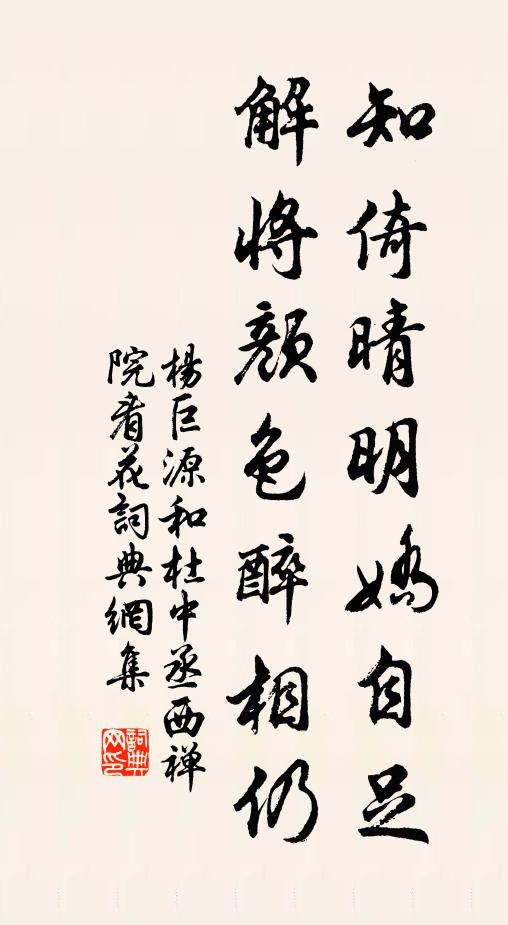 知倚晴明嬌自足
解將顏色醉相仍
楊巨源和杜中丞西禅
院看花詞典網集
詞典网印